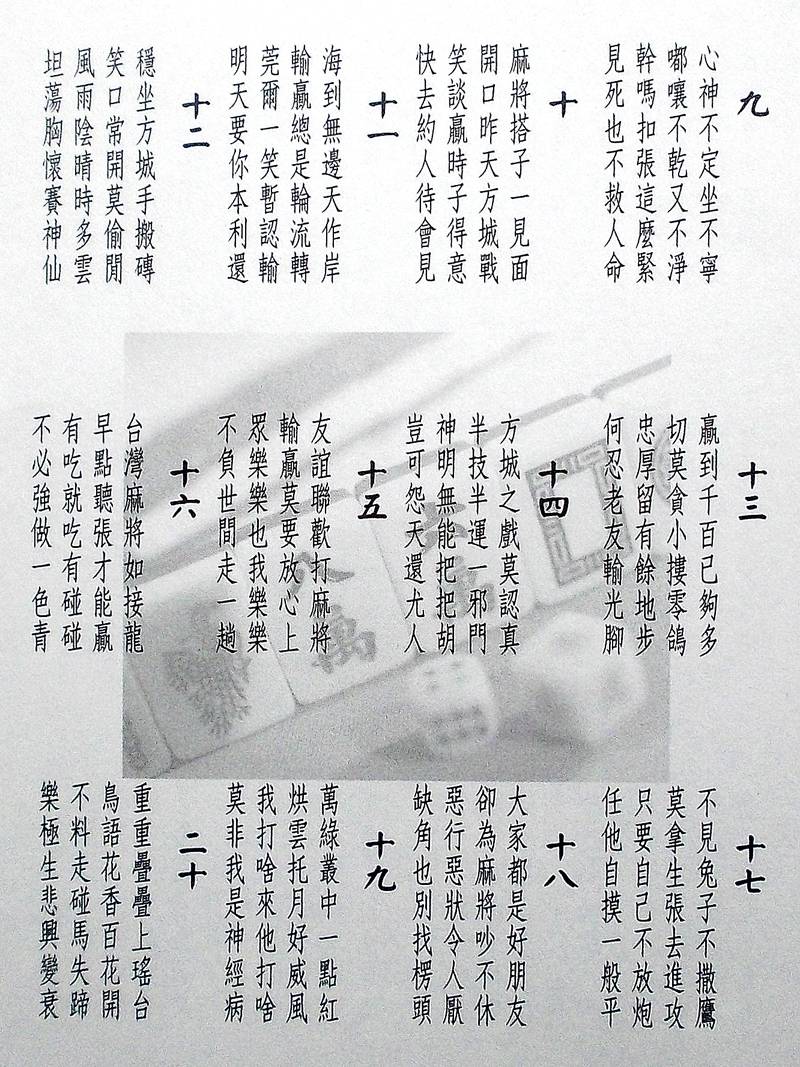 九
心神不定坐不寧
嘟嚷不乾又不淨
幹嗎扣張這麼緊
見死也不救人命
十
麻將搭子一見面
開口昨天方城戰
笑談贏時子得意
快去約人待會見
十一
海到無邊天作岸
輸贏總是輪流轉
莞爾一笑暫認輸
明天要你本利還
十二
穩坐方城手搬磚
笑口常開莫偷閒
風雨陰晴時多雲
坦蕩胸懷賽神仙
十三
贏到千百已夠多
切莫貪小摟零鴿
忠厚留有餘地步
何忍老友輸光腳
十四
方城之戲莫認真
半技半運一邪門
神明無能把把胡
豈可怨天還尤人
十五
友誼聯歡打麻將
輸贏莫要放心上
眾樂樂也我樂樂
不負世間走一趟
十六
台灣麻將如接龍
早點聽張才能贏
有吃就吃有碰碰
不必強做一色青
十七
不見兔子不撒鷹
莫拿生張去進攻
只要自己不放炮
任他自摸一般平
十八
大家都是好朋友
卻為麻將吵不休
惡行惡狀令人厭
缺角也別找楞頭
十九
萬綠叢中一點紅
烘雲托月好威風
我打啥來他打啥
莫非我是神經病
二十
重重疊疊上瑤台
鳥語花香百花開
不料走碰馬失蹄
樂極生悲興變衰
八萬
萬